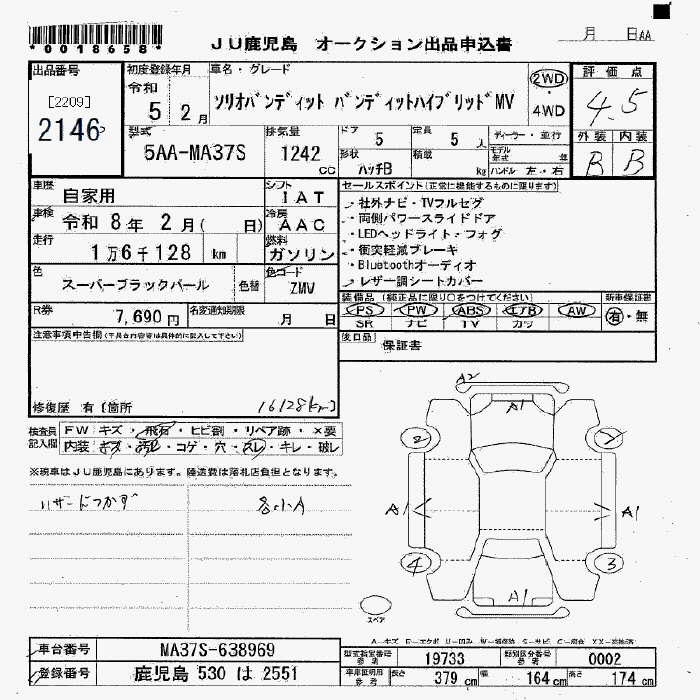 *0018658*
JU鹿児島 オークション出品申込書
月 日AA
出品番号
[2209]
2146
初度登録年月
令和
5 2月
車名・グレード
ソリオバンディット バンディットハイブリッドMV
2WD
・
4WD
評価点
4.5
外装 内装
B B
型式
5AA-MA37S
排気量
1242
cc
ドア
5
定員
5人
形状
ハッチB
積載
kg
ディーラー・並行
モデル年式 年
ハンドル 左・右
車歴
自家用
シフト
IAT
車検
令和 8年 2月( 日)
冷房
AAC
走行
1万6千128 km
燃料
ガソリン
色
スーパーブラックパール
色替
色コード
ZMV
R券
7,690円
名変通知期限
月 日
セールスポイント(正常に機能するものに限ります)
・社外ナビ・TVフルセグ
・両側パワースライドドア
・LEDヘッドライト・フォグ
・衝突軽減ブレーキ
・Bluetoothオーディオ
・レザー調シートカバー
装備品(純正品に限り○をつけてください)
新車保証書
PS PW ABS エアB AW
SR ナビ TV カワ
有・無
後日品
保証書
注意事項申告欄(不具合内容は具体的に記入して下さい)
修復歴 有〔箇所
16128km
検査員
記入欄
FW キズ・飛石・ヒビ割・リペア跡・×要
内装・キズ・汚レ・コゲ・穴・スレ・キレ・破レ
※税車はJU鹿児島にあります。陸送費は落札店負担となります。
各小A
A2
A1
2
A1
A1
4
3
A1
スペア
車台番号
MA37S-638969
登録番号
鹿児島 530 は 2551
型式指定番号
参考
19733
類別区分番号
参考
0002
車庫証明用
参考
長さ
379 cm
幅
164 cm
高さ
174 cm